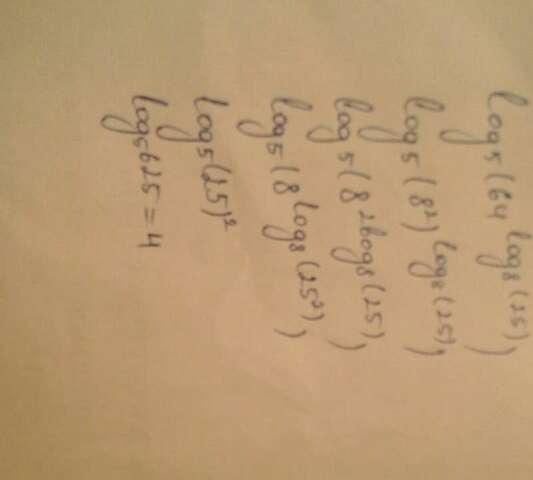 log₅(64^log₈(25))
log₅(8²)^log₈(25))
log₅(8^2log₈(25))
log₅(8^log₈(25²))
log₅(25)²
log₅625=4